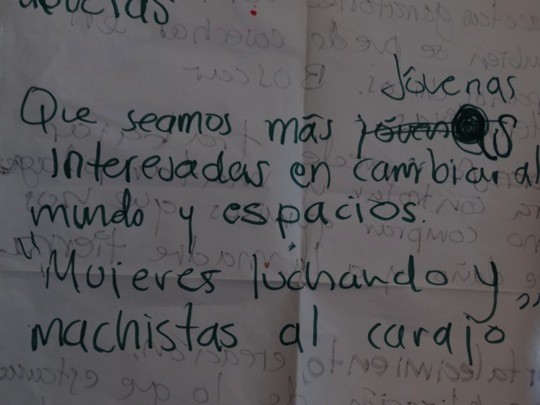 Jóvenas
Que seamos más
interesadas en cambiar al
mundo y espacios.
"Mujeres luchando y
machistas al carajo"